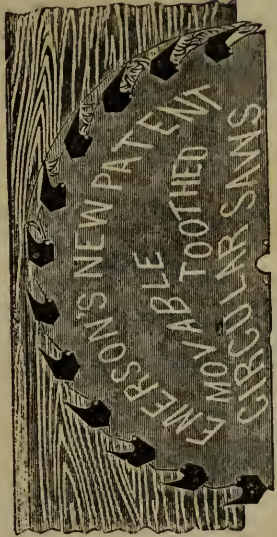 EMERSON'S NEW PATENT
MOVABLE
TOOTHED
CIRCULAR SAWS